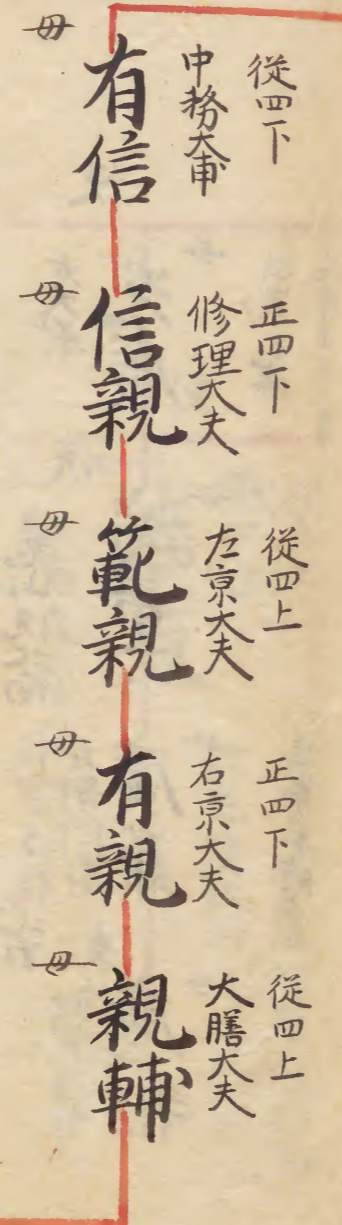 從四下
中務大甫
有信
母
正四下
修理大夫
信親
母
從四上
左京大夫
範親
母
正四下
右京大夫
有親
母
從四上
大膳大夫
親輔
母